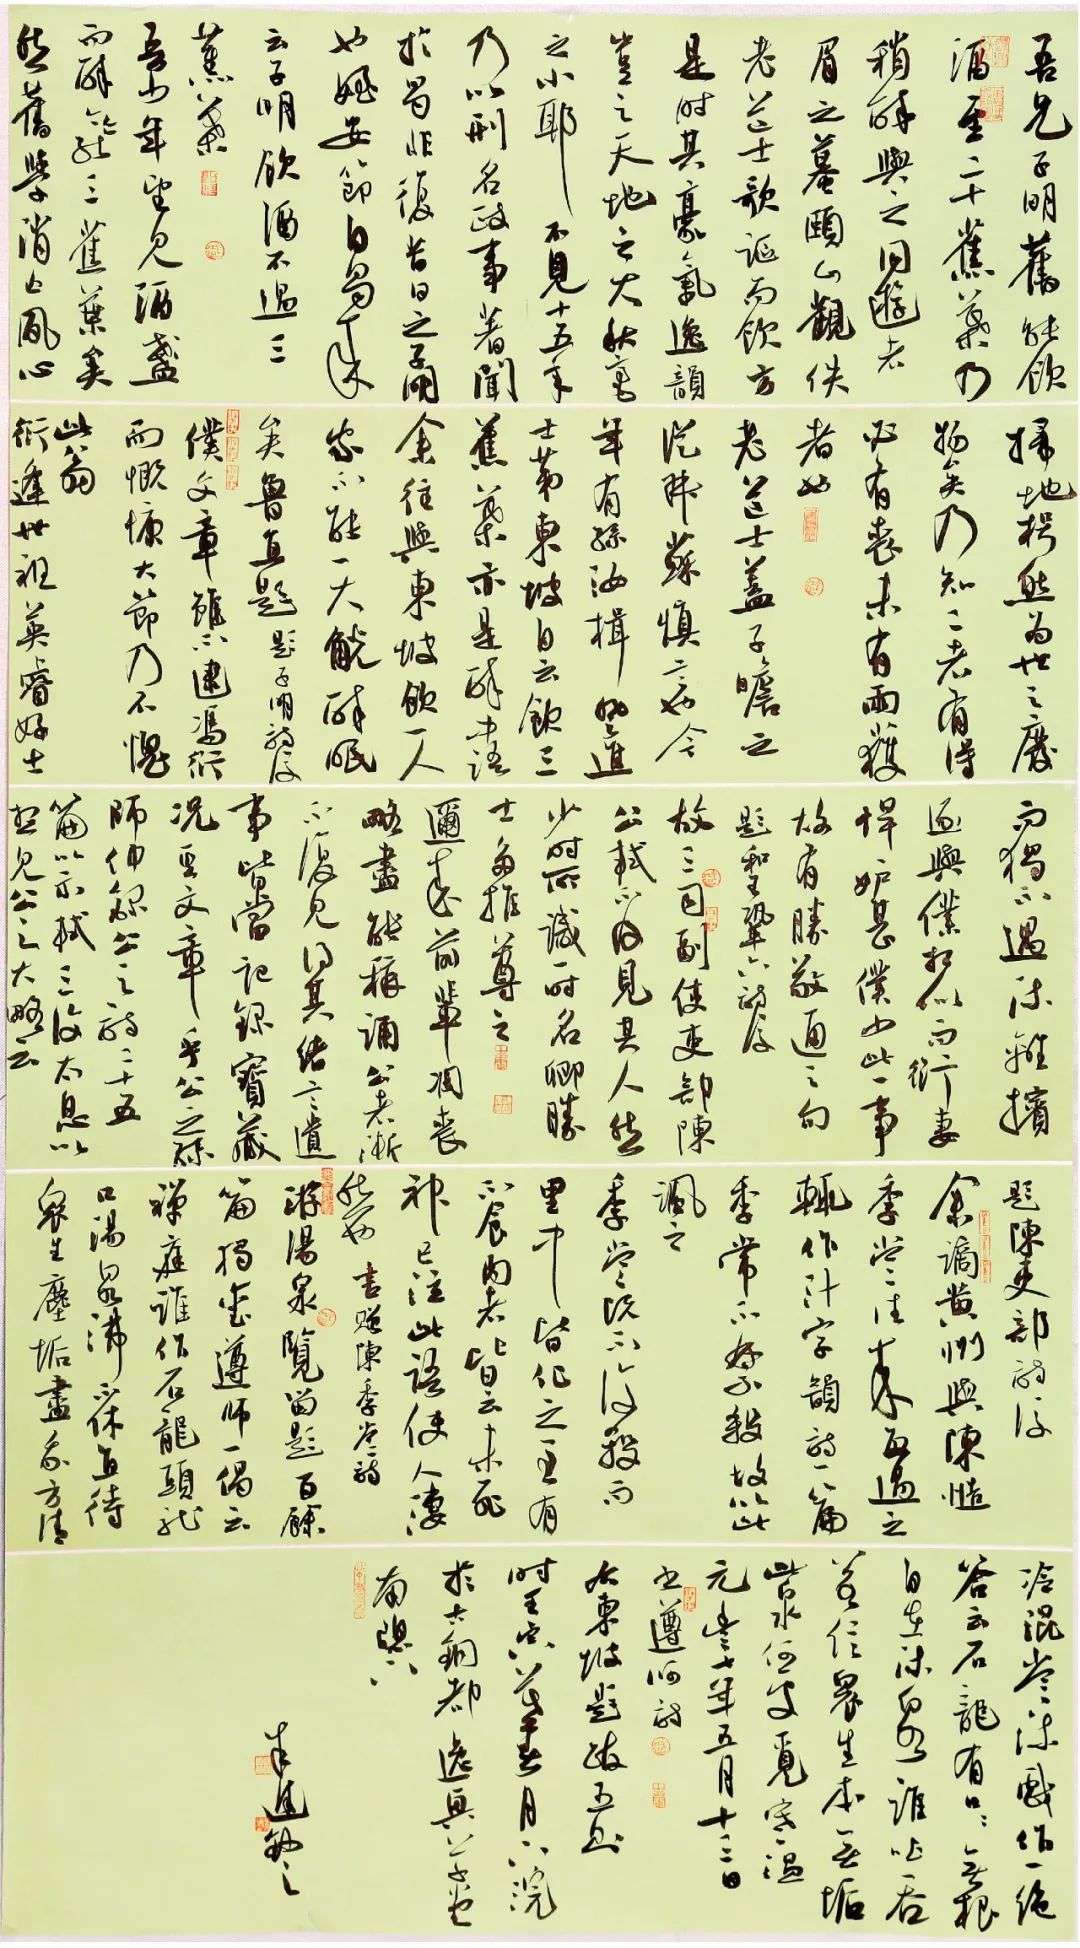 吾兄子明舊能飲
酒至二十蕉葉乃
稍醉與之同遊者
眉之蟇頤山觀侯
老道士歌謳而飲方
是時其豪氣逸韻
豈知天地之大秋毫
之小耶 不見十五年
乃以刑名政事著聞
於蜀非復昔日之子明
也姪安節自蜀來
云子明飲酒不過三
蕉葉
吾少年望見酒盞
而醉今亦能三蕉葉矣
然舊學消亡夙心
掃地枵然為世之廢
物矣乃知二者有得
必有喪未有兩獲
者也
老道士蓋子瞻之
從叔蘇慎言也今
年有孫汝楫登進
士第東坡自云飲三
蕉葉亦是醉中語
余往與東坡飲一人
家不能一大觥醉眠
矣魯直題 題子明詩後
僕文章雖不逮馮衍
而慨慷大節乃不愧
此翁
衍逢世祖英睿好士
而獨不遇流離擯
逐與僕相似而衍妻
悍妒甚僕少此一事
故有勝敬通之句
題和王鞏六詩後
故三司副使吏部陳
公軾不及見其人然
少時所識一時名卿勝
士多推尊之
邇來前輩凋喪
略盡能稱誦公者漸
不復見得其緒言遺
事皆當記錄寶藏
況其文章乎公之孫
師仲錄公之詩二十五
篇以示軾三復太息以
想見公之大略云
題陳吏部詩後
余謫黃州與陳慥
季常往來每過之
輒作汁字韻詩一篇
季常不禁殺故以此
諷之
季常既不復殺而
里中皆化之至有
不食肉者皆云未死
神已泣此語使人淒
然也 書贈陳季常詩
游湯泉覽留題百餘
篇獨愛遵師一偈云
禪庭誰作石龍頭龍
口湯泉沸不休直待
眾生塵垢盡我方清
冷混常流戲作一絕
答云石龍有口口無根
自在流泉誰吐吞
若信眾生本無垢
此泉何處覓寒溫
元豐七年五月十三日
書遵師詩
右東坡題跋五則
時
南窗下